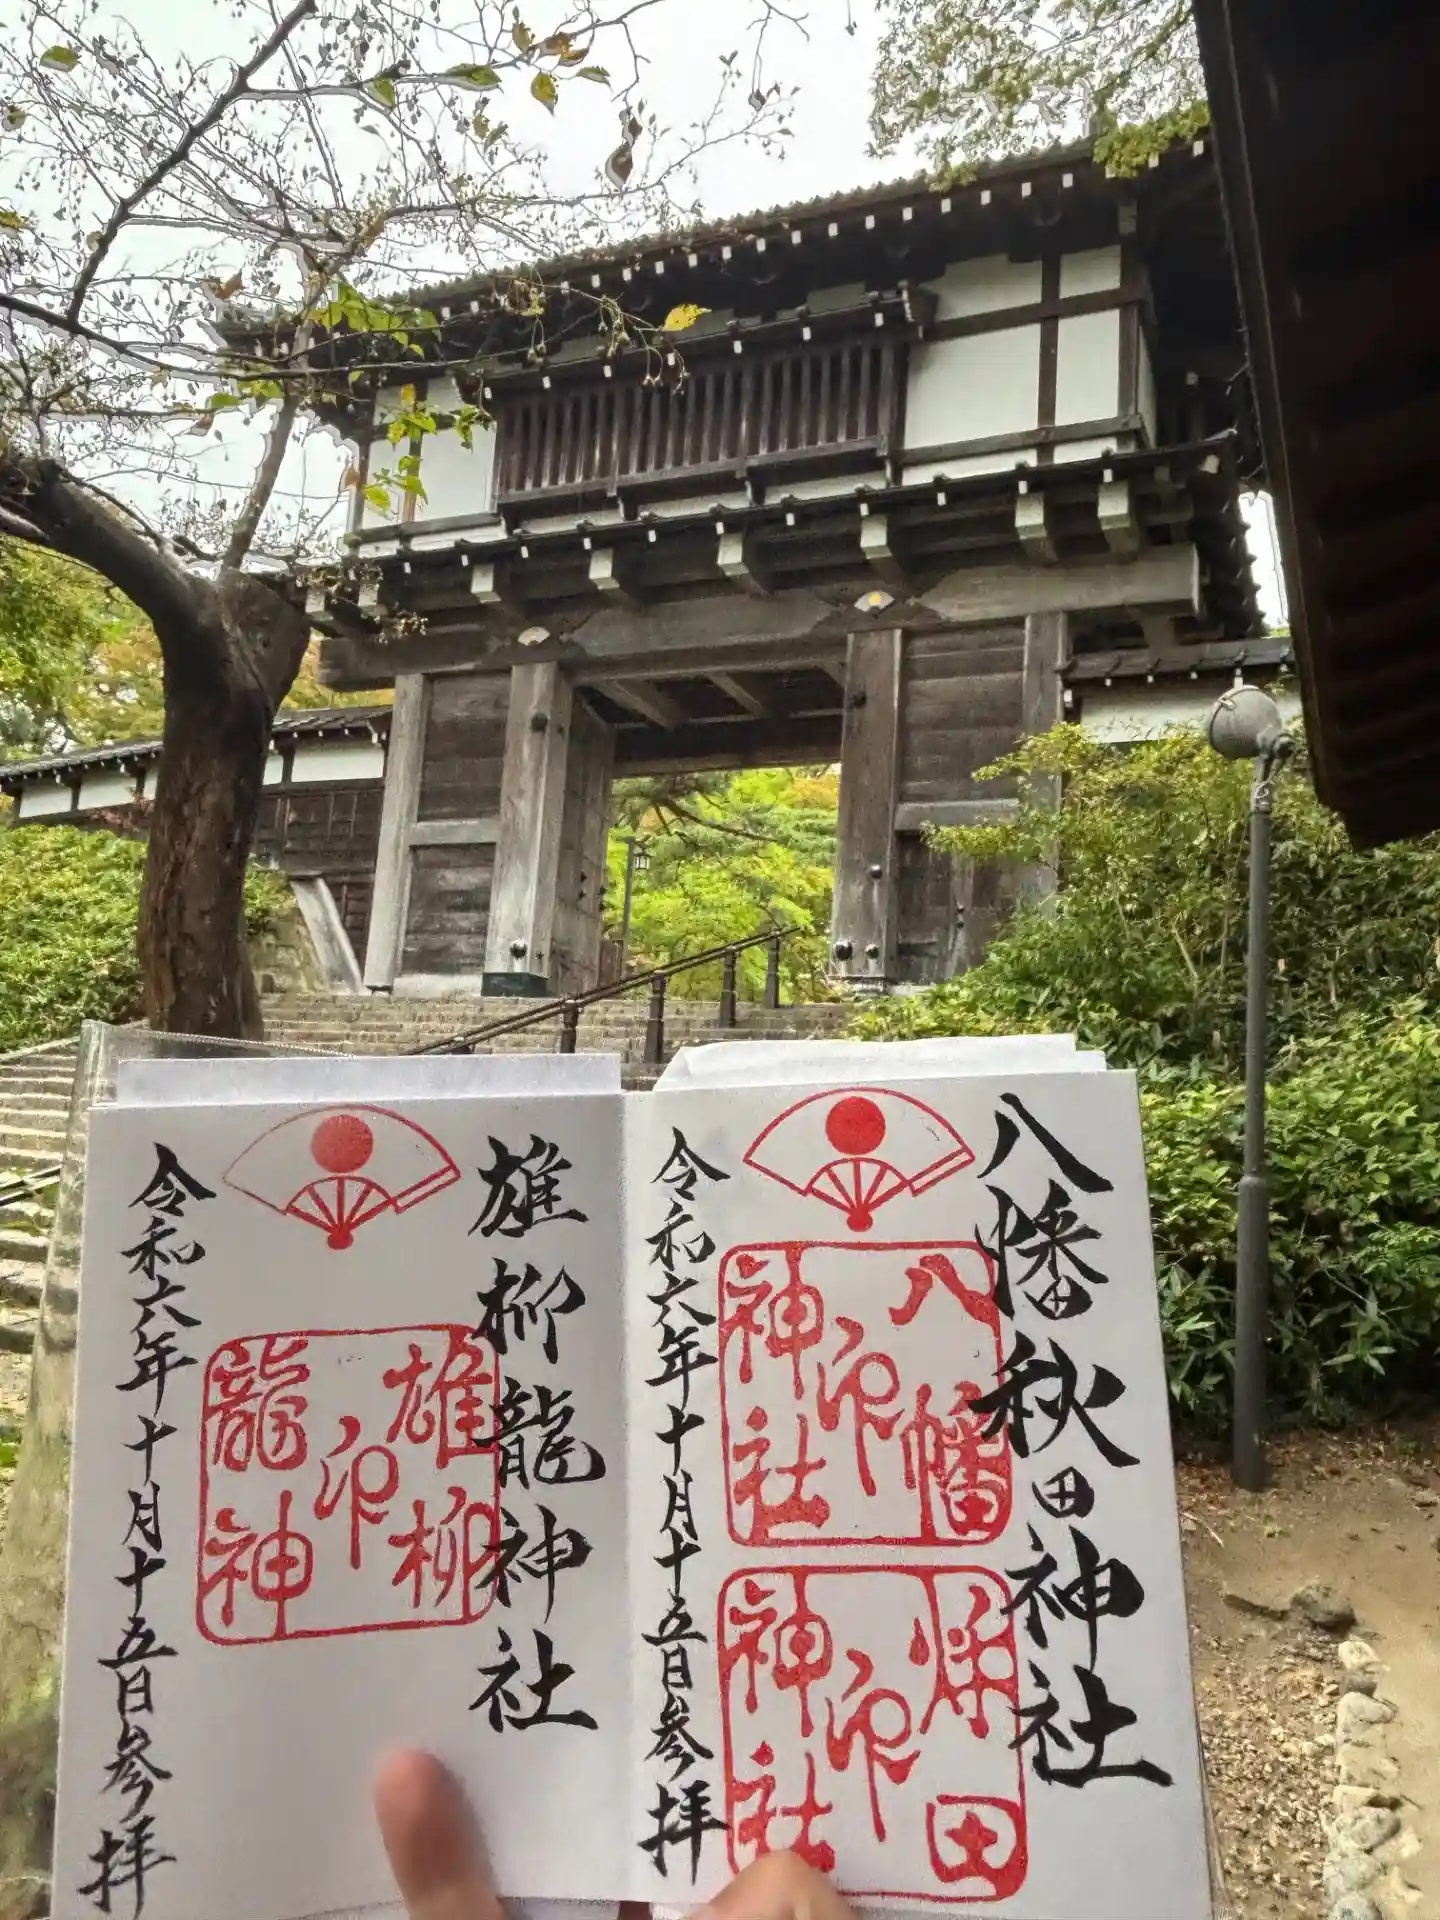 八幡秋田神社
八幡
神社
印
秌田
神社
印
令和六年十月十五日参拝
雄柳龍神社
雄柳
龍神
印
令和六年十月十五日参拝